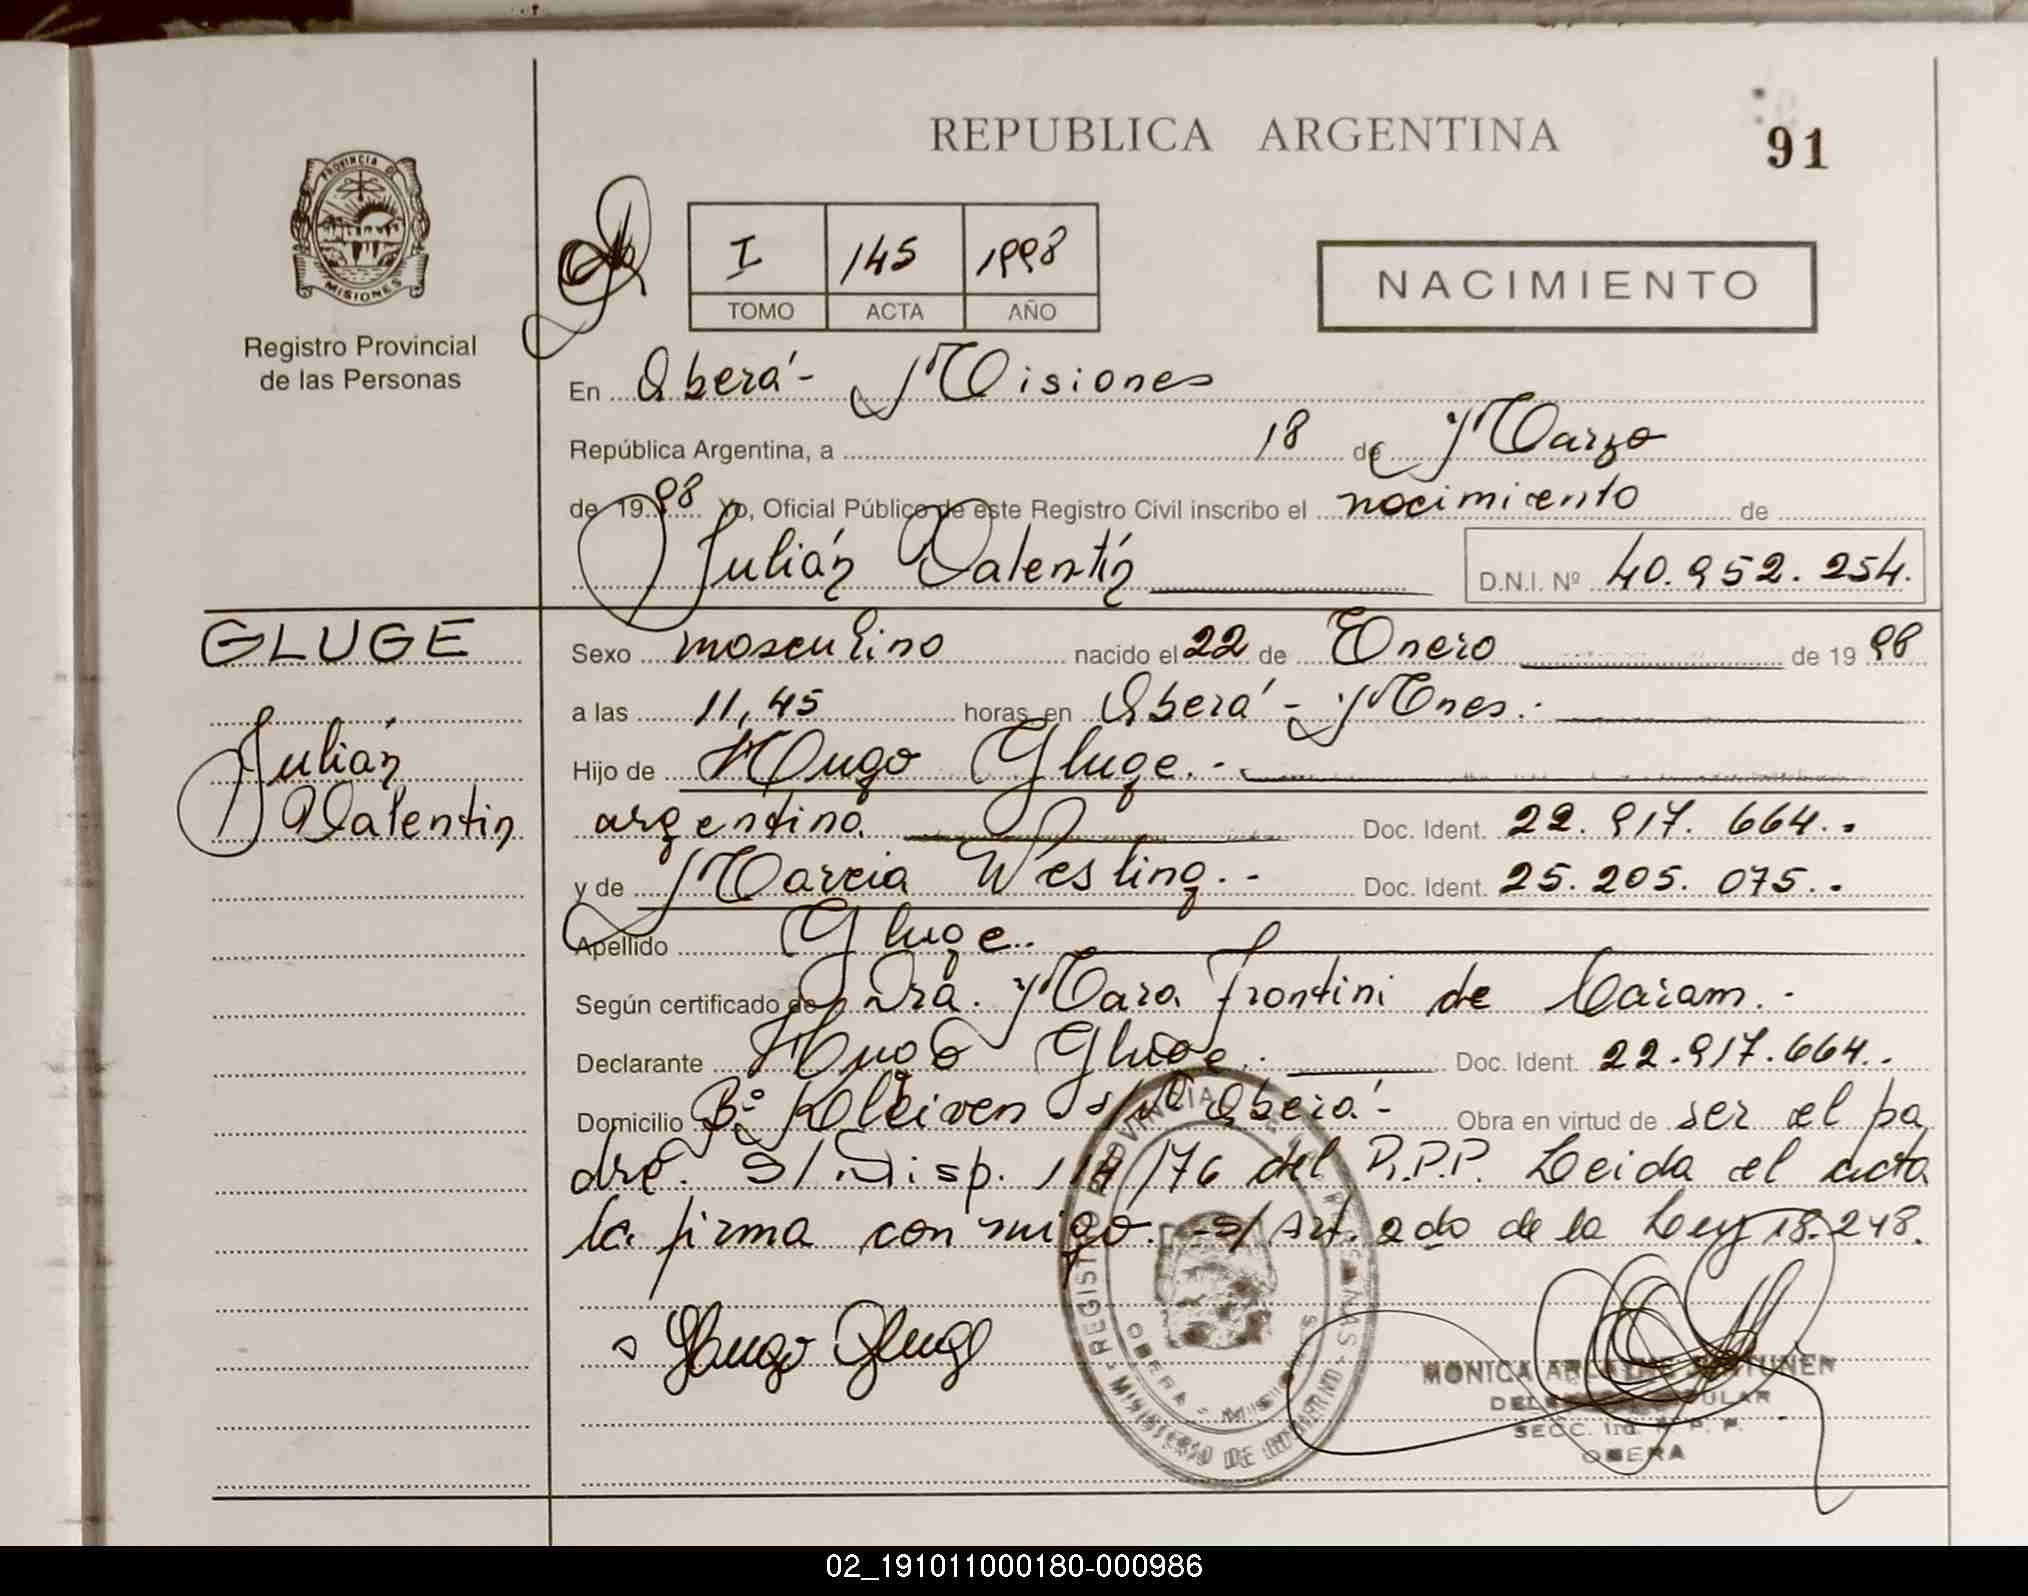 REPUBLICA ARGENTINA
91
PROVINCIA DE
MISIONES
Registro Provincial
de las Personas
I 145 1998
TOMO ACTA AÑO
NACIMIENTO
En Oberá - Misiones
República Argentina, a 18 de Marzo
de 1998 Yo, Oficial Público de este Registro Civil inscribo el nacimiento de
Julián Valentín D.N.I. Nº 40.952.254.
GLUGE
Julián
Valentin
Sexo masculino nacido el 22 de Enero de 1998
a las 11,45 horas en Oberá - Mnes.-
Hijo de Hugo Gluge.-
argentino Doc. Ident. 22.917.664..
y de Marcia Wesling.- Doc. Ident. 25.205.075..
Apellido Gluge..
Según certificado de Dra. Mara Frontini de Caram.-
Declarante Hugo Gluge. Doc. Ident. 22.917.664..
Domicilio Bº Kleiven s/nº Oberá - Obra en virtud de ser el pa
dre. S/Disp. 114/76 del R.P.P. Leida el acta
la firma conmigo. -s/Art. 2do de la Ley 18.248.
Hugo Gluge
REGISTRO PROVINCIAL DE LAS PERSONAS - MINISTERIO DE GOBIERNO
OBERA - MISIONES
MONICA
SECC. 1ra. R. P. P.
OBERA
02_191011000180-000986